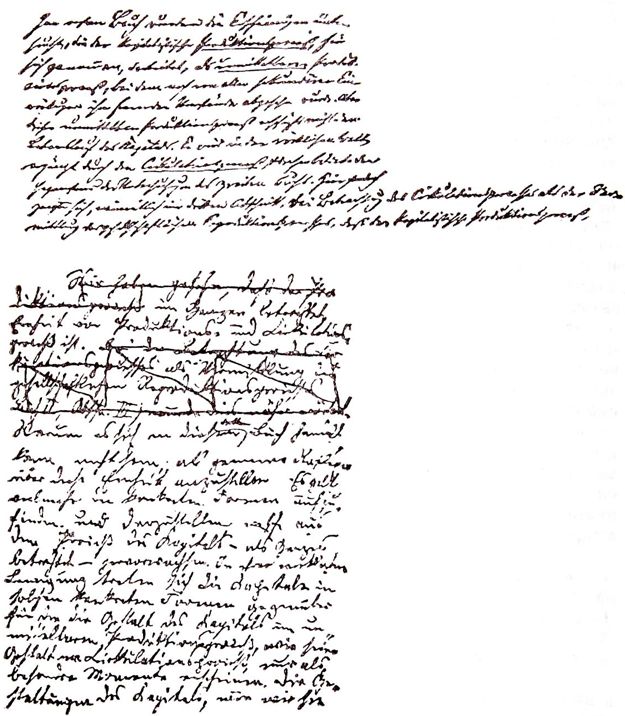 Im ersten Buch wurden die Erscheinungen unter-
sucht, die der kapitalistische Produktionsprozeß, für
sich genommen, darbietet, als unmittelbarer Produk-
tionsprozeß, bei dem noch von allen sekundären Ein-
wirkungen ihm fremder Umstände abgesehn wurde. Aber
dieser unmittelbare Produktionsprozeß erschöpft nicht den
Lebenslauf des Kapitals. Er wird in der wirklichen Welt
ergänzt durch den Cirkulationsprozeß, und dieser bildete den
Gegenstand der Untersuchungen des zweiten Buchs. Hier
zeigte sich, namentlich im dritten Abschnitt, bei Betrachtung des Cirkulationsprozesses als der Ver-
mittlung des gesellschaftlichen Reproduktionsprozesses, daß der kapitalistische Produktionsprozeß,
Wir haben gesehen, daß der Pro-
duktionsprozeß im Ganzen betrachtet
Einheit von Produktions- und Cirkulations-
prozeß ist. Bei der Betrachtung des Cir-
kulationsprozesses als Vermittlung des
gesellschaftlichen Reproduktionsprozesses
Worum es sich in diesem dritten Buch handelt
kann nicht sein, allgemeine Reflexionen
über diese Einheit anzustellen. Es gilt
vielmehr die konkreten Formen aufzu-
finden und darzustellen, welche aus
dem Prozeß des Kapitals – als Ganzes
betrachtet – hervorwachsen. In ihrer wirklichen
Bewegung treten sich die Kapitale in
solchen konkreten Formen gegenüber
für die die Gestalt des Kapitals im un-
mittelbaren Produktionsprozeß, wie seine
Gestalt im Cirkulationsprozeß, nur als
besondere Momente erscheinen. Die Ge-
staltungen des Kapitals, wie wir sie